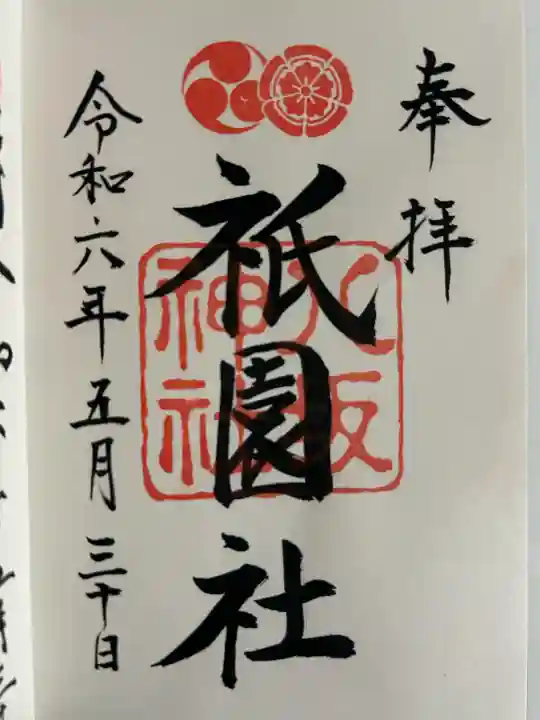 奉拝
祇園社
八坂
神社
令和六年五月三十日